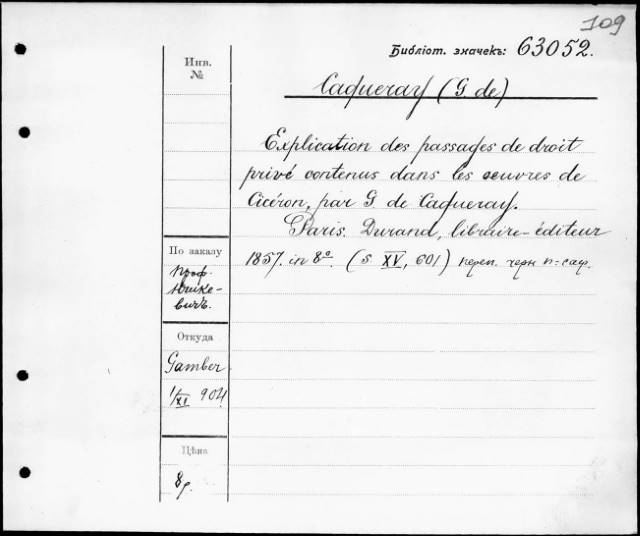 109
Библіот. значекъ: 63052.
Инв.
№
Caqueray (G. de)
Explication des passages de droit
privé contenus dans les oeuvres de
Cicéron, par G. de Caqueray.
Paris. Durand, libraire-éditeur
1857. in 8º. (s. XV, 601) переп. черн п=саф.
По заказу
проф.
Юшке-
вичъ.
Откуда
Gamber
1/XI 904
Цѣна
8р.